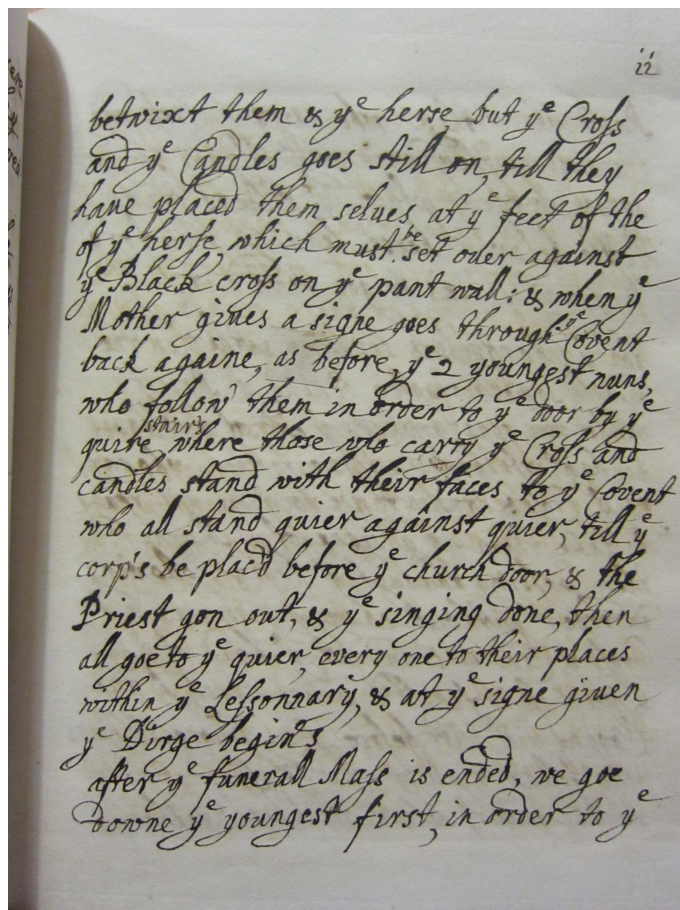 ii
betwixt them & yᵉ herse but yᵉ Cross
and yᵉ Candles goes still on, till they
have placed them selves at yᵉ feet of the
of yᵉ herse, which must be set over against
yᵉ Black cross on yᵉ pant wall: & when yᵉ
Mother gives a signe goes through yᵉ Covent
back againe, as before, yᵉ 2 youngest nuns,
who follow them in order to yᵉ door by yᵉ
quire stairs where those who carry yᵉ Cross and
candles stand with their faces to yᵉ Covent
who all stand quier against quier, till yᵉ
corp's be plac'd before yᵉ church door, & the
Priest gon out, & yᵉ singing done, then
all goe to yᵉ quier, every one to their places
within yᵉ Lessonnary, & at yᵉ signe given
yᵉ Dirge begins
after yᵉ funerall Mass is ended, we goe
downe yᵉ youngest first, in order to yᵉ